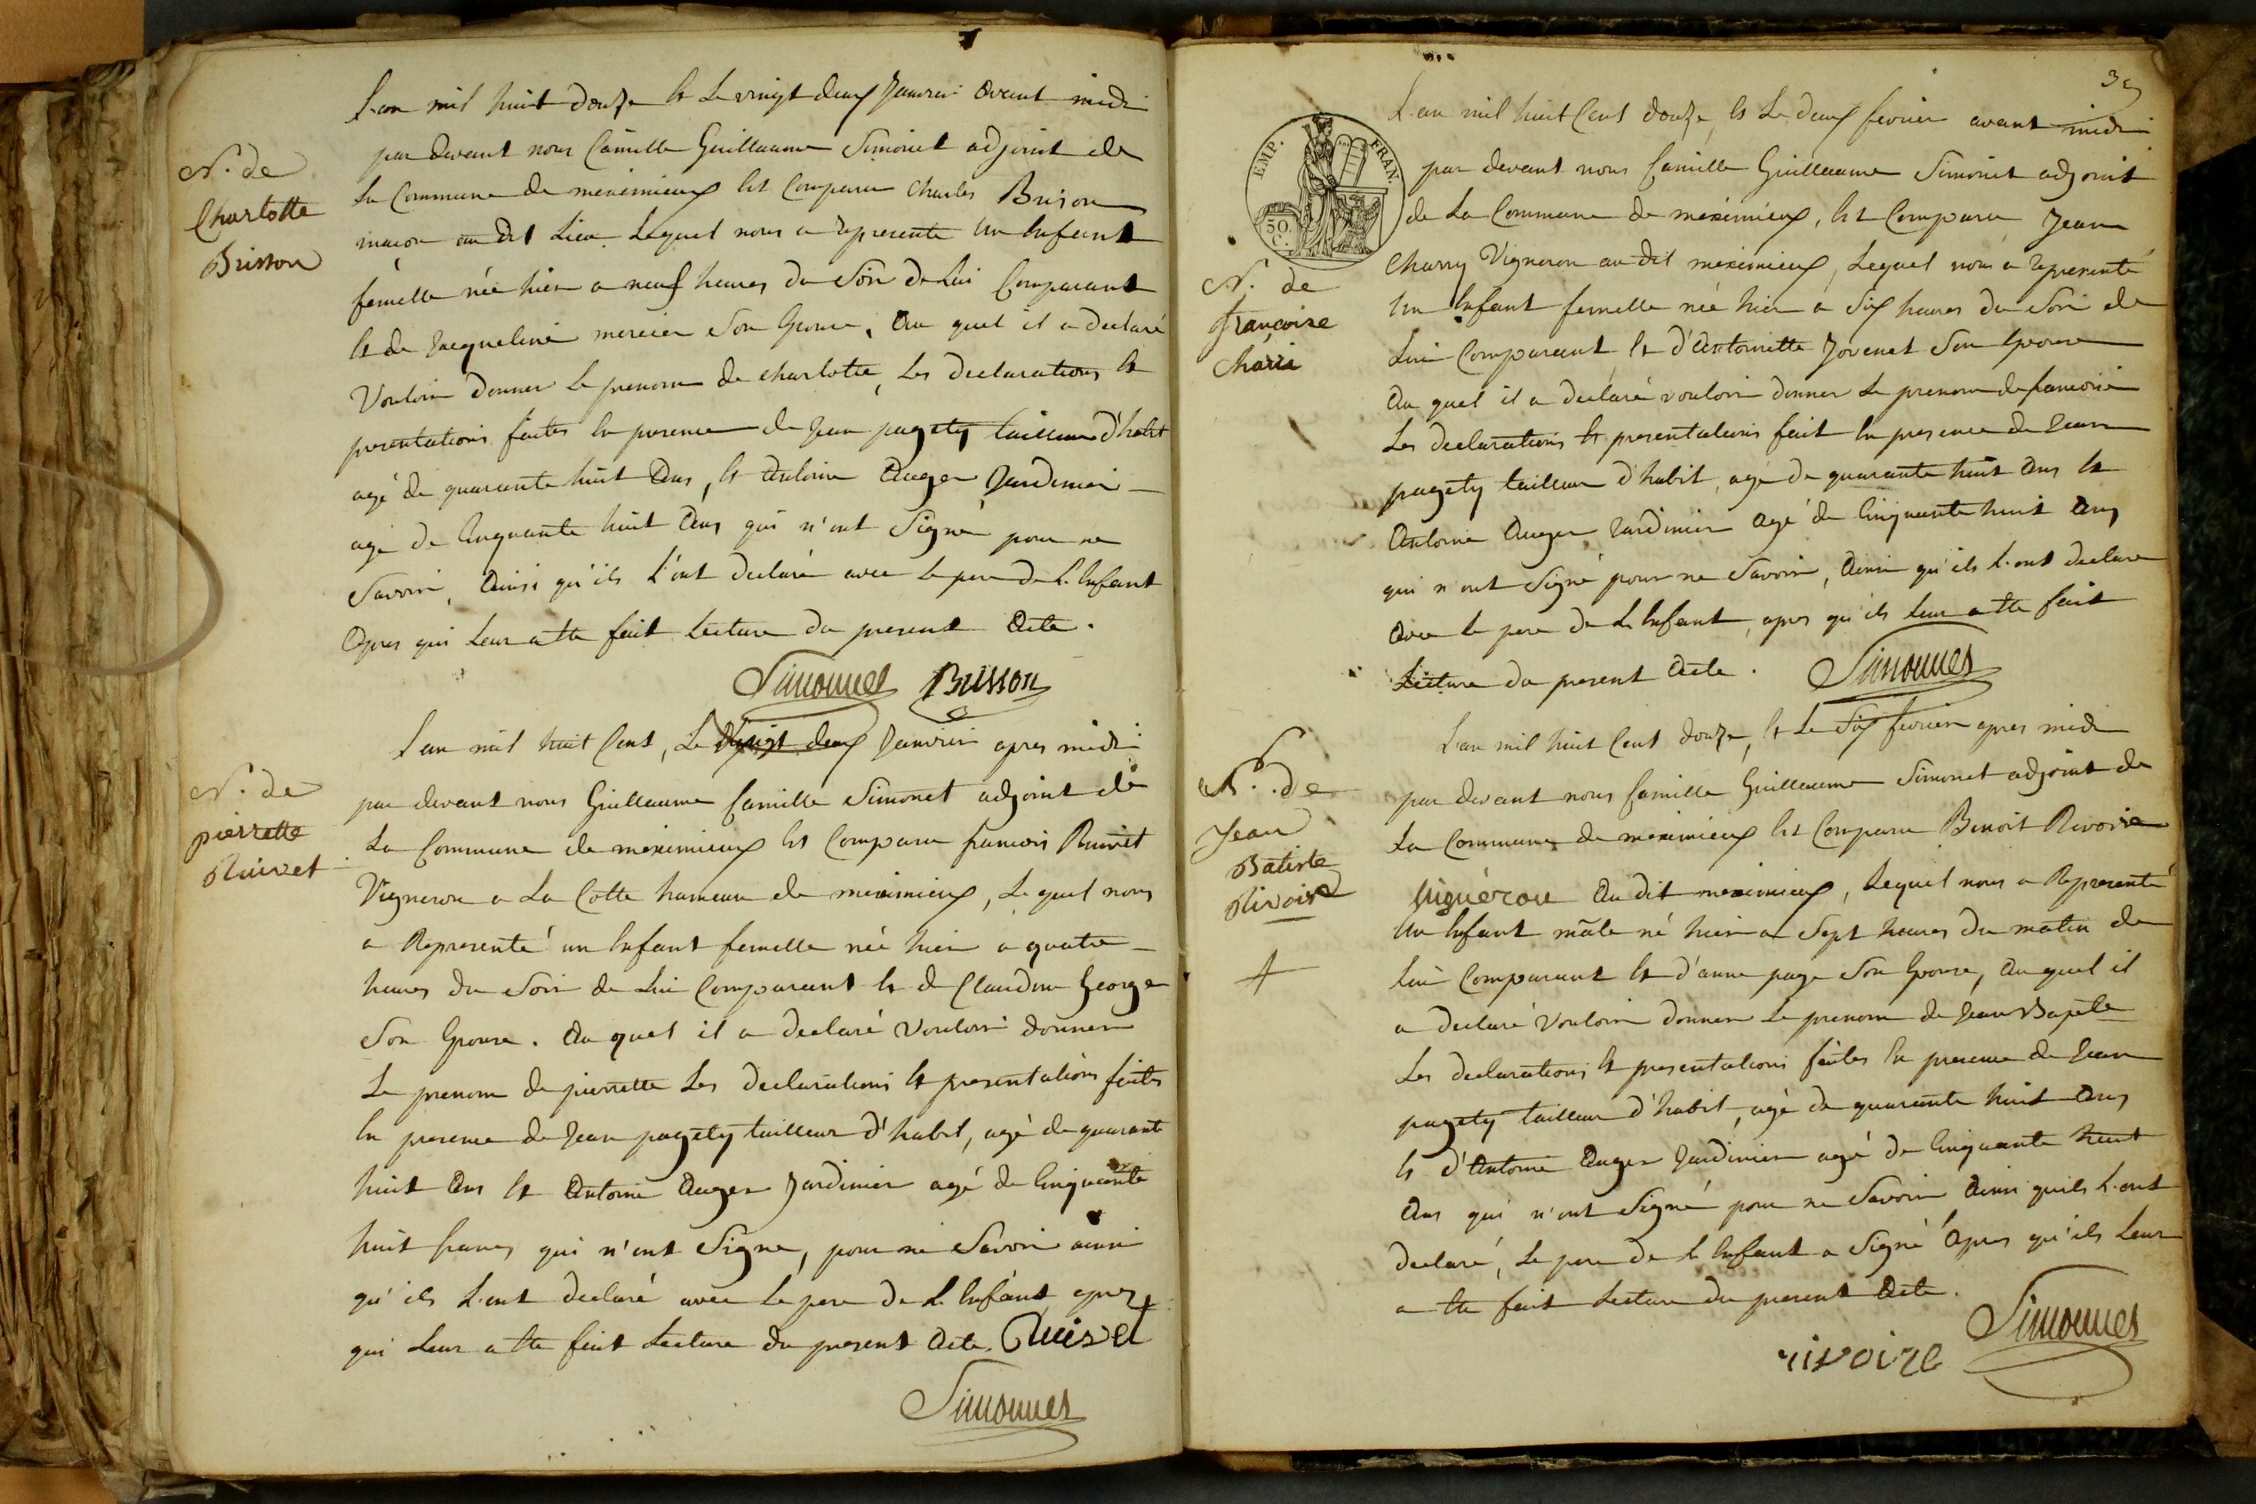 N. de
Charlotte
Brisson
L'an mil huit douze et Le vingt deux Janvier avant midi
par devant nous Camille Guillaume Simonet adjoint de
La Commune de meximieux Est Comparu Charles Brison
macon au dit Lieu Lequel nous a representé Un Enfant
femelle née hier a neuf heures du Soir de Lui Comparant
Et de Jacqueline mercier Son Epouse, Au quel il a declaré
Vouloir donner Le prenom de charlotte, Les declarations Et
presentations faites En presence de Jean pagety tailleur d'habit
agé de quarante huit Ans, Et Antoine Auger Jardinier
agé de Cinquante huit Ans qui n'ont Signé pour ne
Savoir, Ainsi qu'ils L'ont declaré avec Le pere de L'Enfant
Apres qui Leur a Ete fait Lecture du present Acte.
Simonnet Brisson
N. de
pierrette
Ruivet
L'an mil huit Cent, Le vingt deux Janvier apres midi
par devant nous Guillaume Camille Simonet adjoint de
La Commune de meximieux Est Comparu francois Ruivet
Vigneron a La Cotte hameau de meximieux, Le quel nous
a Representé un Enfant femelle née hier a quatre
heures du Soir de Lui Comparant Et de Claudine George
Son Epouse. Au quel il a declaré Vouloir donner
Le prenom de pierrette Les declarations Et presentations faites
En presence de Jean pagety tailleur d'habit, agé de quarante
huit Ans Et Antoine Auger Jardinier agé de Cinquante
huit francs qui n'ont Signe, pour ne Savoir ainsi
qu'ils L'ont declaré avec Le pere de L'Enfant apres
qui Leur a Ete fait Lecture du present Acte. Ruivet
Simonnet
EMP. FRAN.
50. C.
N. de
françoise
Charri
L'an mil huit Cent douze, Et Le deux fevrier avant midi
par devant nous Camille Guillaume Simonet adjoint
de La Commune de meximieux, Est Comparu Jean
Charry Vigneron au dit meximieux, Lequel nous a representé
Un Enfant femelle née hier a Six heures du Soir de
Lui Comparant Et d'Antoinette Jovenet Son Epouse
Au quel il a declaré vouloir donner Le prenom de francoise
Les declarations Et presentations fait En presence de Jean
pagety tailleur d'habit, agé de quarante huit Ans Et
Antoine Auger Jardinier Agé de Cinquante huit Ans
qui n'ont Signé pour ne Savoir, Ainsi qu'ils L'ont declare
Avec Le pere de L'Enfant, apres qu'ils Leur a Ete fait
Lecture du present Acte. Simonnet
N. de
Jean
Batiste
Rivoire
L'an mil huit Cent douze, Et Le Six fevrier apres midi
par devant nous Camille Guillaume Simonet adjoint de
La Commune de meximieux Est Comparu Benoit Rivoire
vignéron Au dit meximieux, Lequel nous a Representé
Un Enfant mâle né hier a Sept heures du matin de
Lui Comparant Et d'anne page Son Epouse, Au quel il
a declaré Vouloir donner Le prenom de Jean Bapte
Les declarations Et presentations faites En presence de Jean
pagety tailleur d'habit, agé de quarante huit Ans
Et d'Antoine Auger Jardinier agé de Cinquante huit
Ans qui n'ont Signé pour ne Savoir Ainsi quils L'ont
declaré, Le pere de L'Enfant a Signé Apres qu'ils Leur
a Ete fait Lecture du present Acte.
rivoire Simonnet